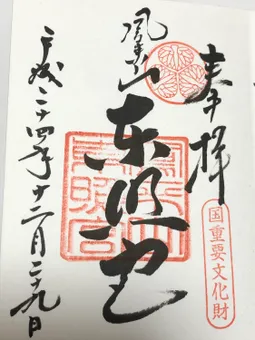 奉拝
国重要文化財
鳳来山
東照宮
平成二十四年十二月二十九日